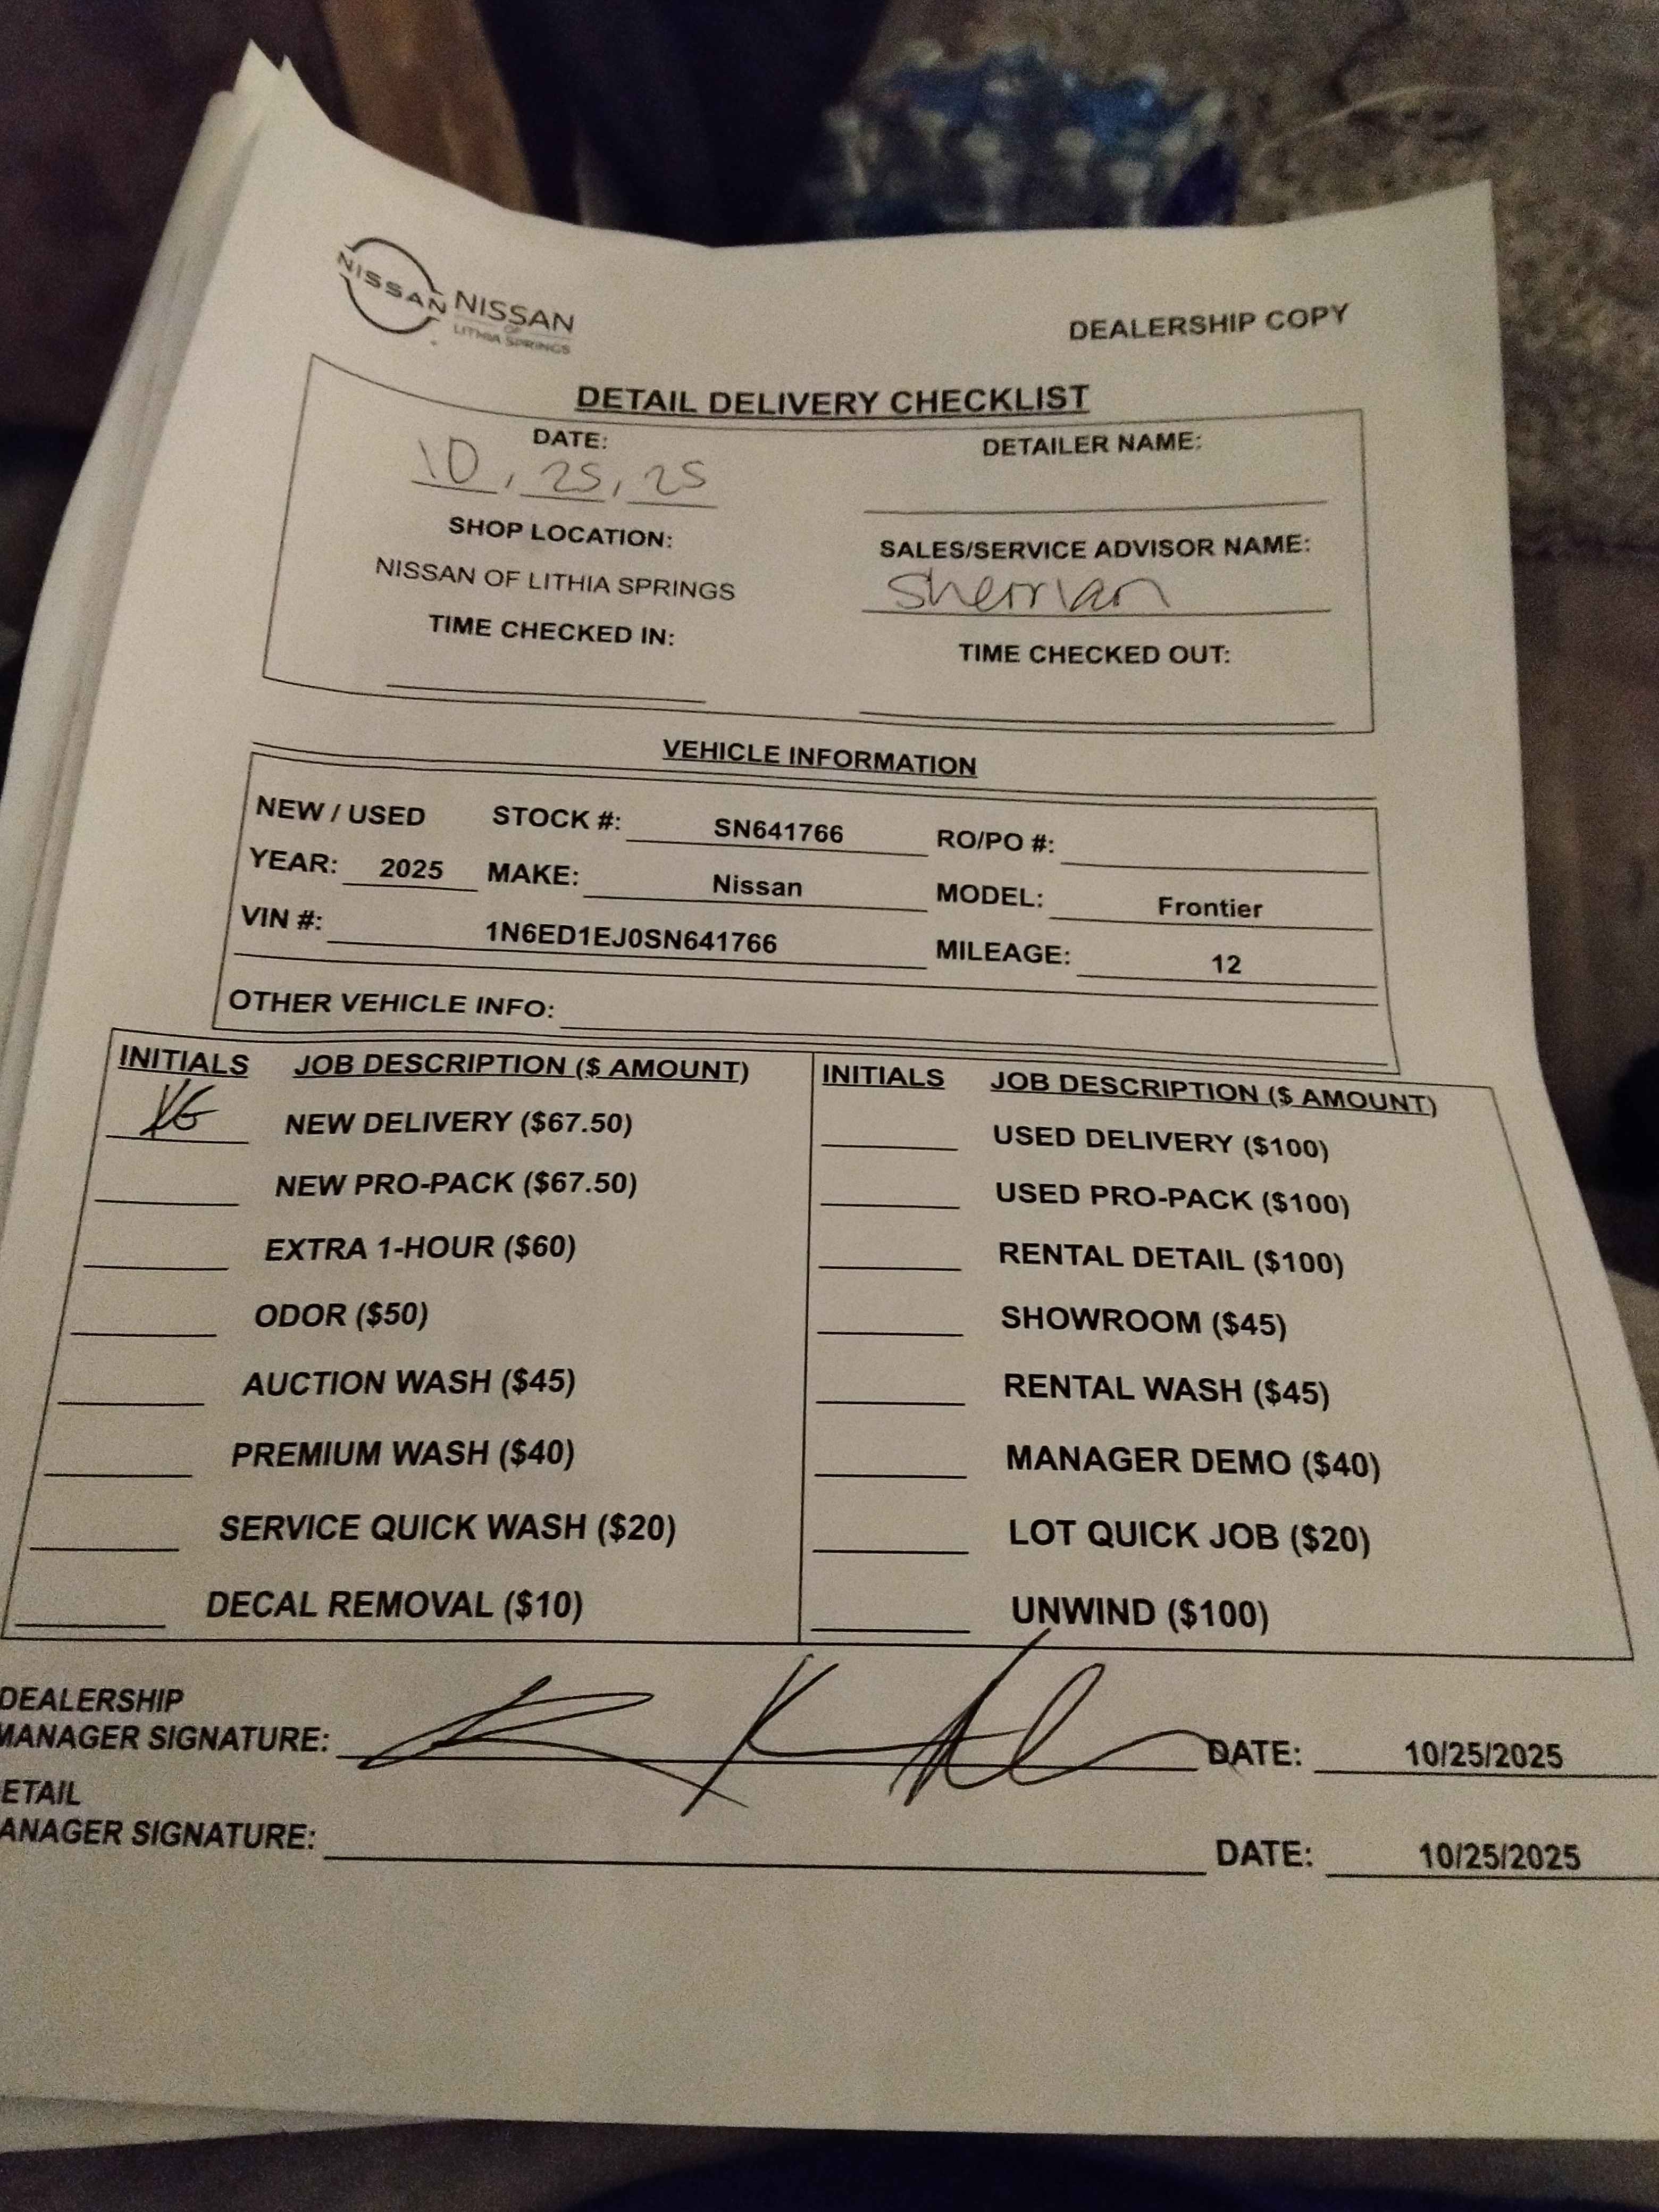 NISSAN
NISSAN
OF
LITHIA SPRINGS
DEALERSHIP COPY
DETAIL DELIVERY CHECKLIST
DATE: DETAILER NAME:
10, 25, 25
SHOP LOCATION: SALES/SERVICE ADVISOR NAME:
NISSAN OF LITHIA SPRINGS Sherrian
TIME CHECKED IN: TIME CHECKED OUT:
VEHICLE INFORMATION
NEW / USED STOCK #: SN641766 RO/PO #:
YEAR: 2025 MAKE: Nissan MODEL: Frontier
VIN #: 1N6ED1EJ0SN641766 MILEAGE: 12
OTHER VEHICLE INFO:
INITIALS JOB DESCRIPTION ($ AMOUNT) INITIALS JOB DESCRIPTION ($ AMOUNT)
NEW DELIVERY ($67.50) USED DELIVERY ($100)
NEW PRO-PACK ($67.50) USED PRO-PACK ($100)
EXTRA 1-HOUR ($60) RENTAL DETAIL ($100)
ODOR ($50) SHOWROOM ($45)
AUCTION WASH ($45) RENTAL WASH ($45)
PREMIUM WASH ($40) MANAGER DEMO ($40)
SERVICE QUICK WASH ($20) LOT QUICK JOB ($20)
DECAL REMOVAL ($10) UNWIND ($100)
DEALERSHIP
MANAGER SIGNATURE: DATE: 10/25/2025
ETAIL
ANAGER SIGNATURE: DATE: 10/25/2025